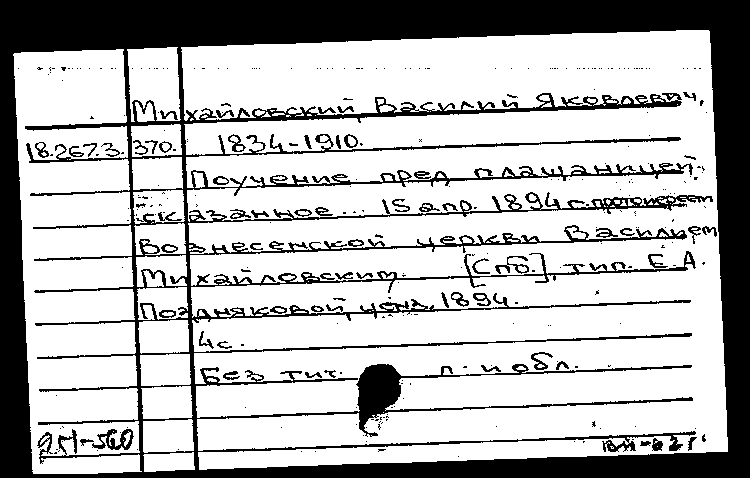 Михайловский, Василий Яковлевич,
18.267.3.370. 1834-1910.
Поучение пред плащаницей,
сказанное... 15 апр. 1894 г. протоиереем
Вознесенской церкви Василием
Михайловским. [Спб.], тип. Е.А.
Поздняковой, ценз. 1894.
4с.
Без тит. л. и обл.
251-560